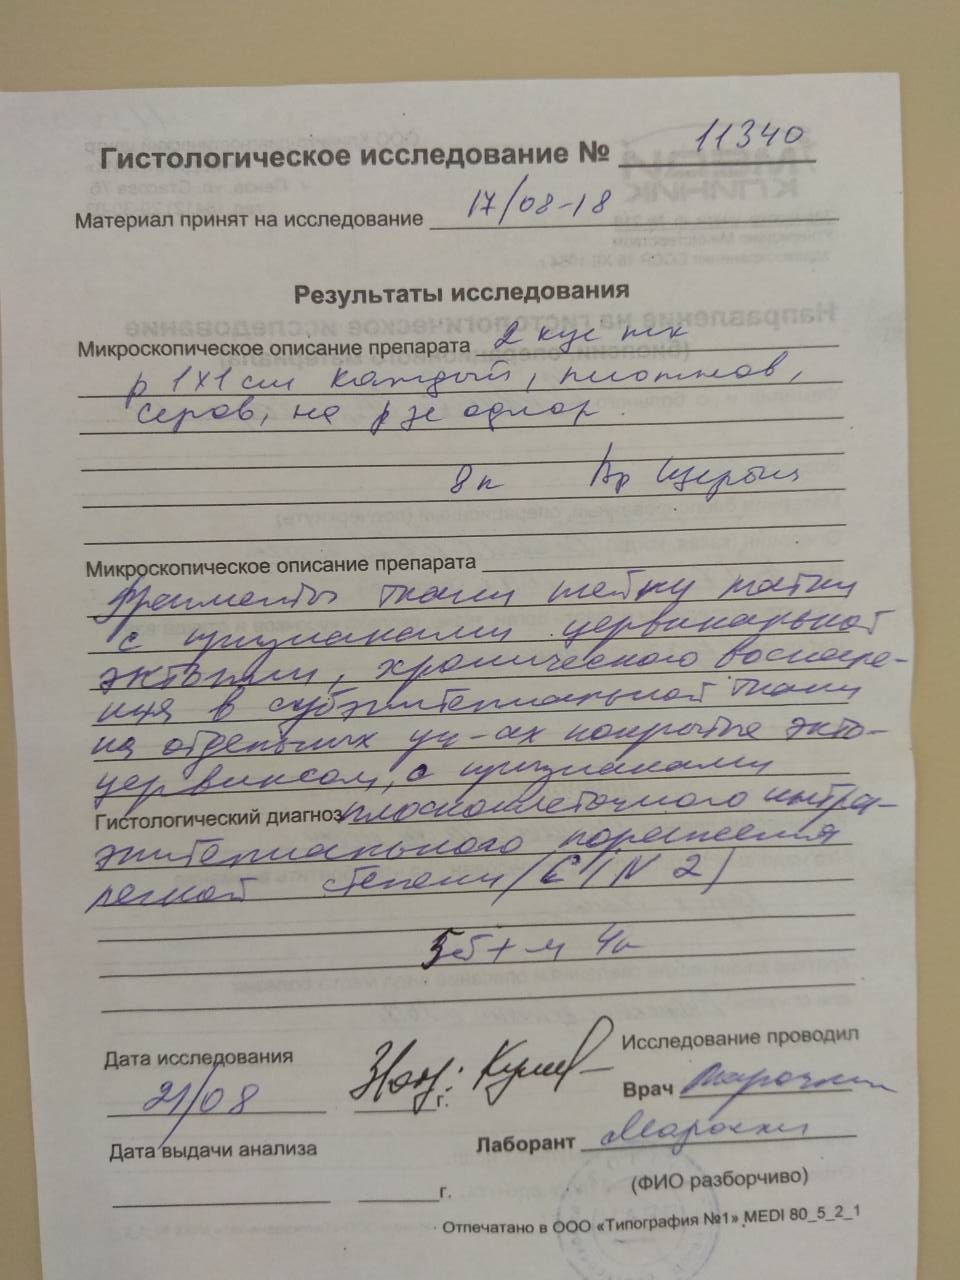 Гистологическое исследование № 11340
Материал принят на исследование 17/08-18
Результаты исследования
Микроскопическое описание препарата 2 кус тк
р 1х1 см каждый, плотнов,
серов, на р-зе однор.
8п Вр
Микроскопическое описание препарата
Фрагменты ткани шейки матки
с признаками цервикальной
эктопии, хронического воспале-
ния в субэпителиальной ткани
на отдельных уч-ах покрытые экто-
цервиксом, с признаками
Гистологический диагноз плоскоклеточного интра-
эпителиального поражения
легкой степени (CIN 2)
Дата исследования
21/08 г.
Исследование проводил
Врач
Дата выдачи анализа
Лаборант
г.
(ФИО разборчиво)
Отпечатано в ООО «Типография №1» MEDI 80_5_2_1